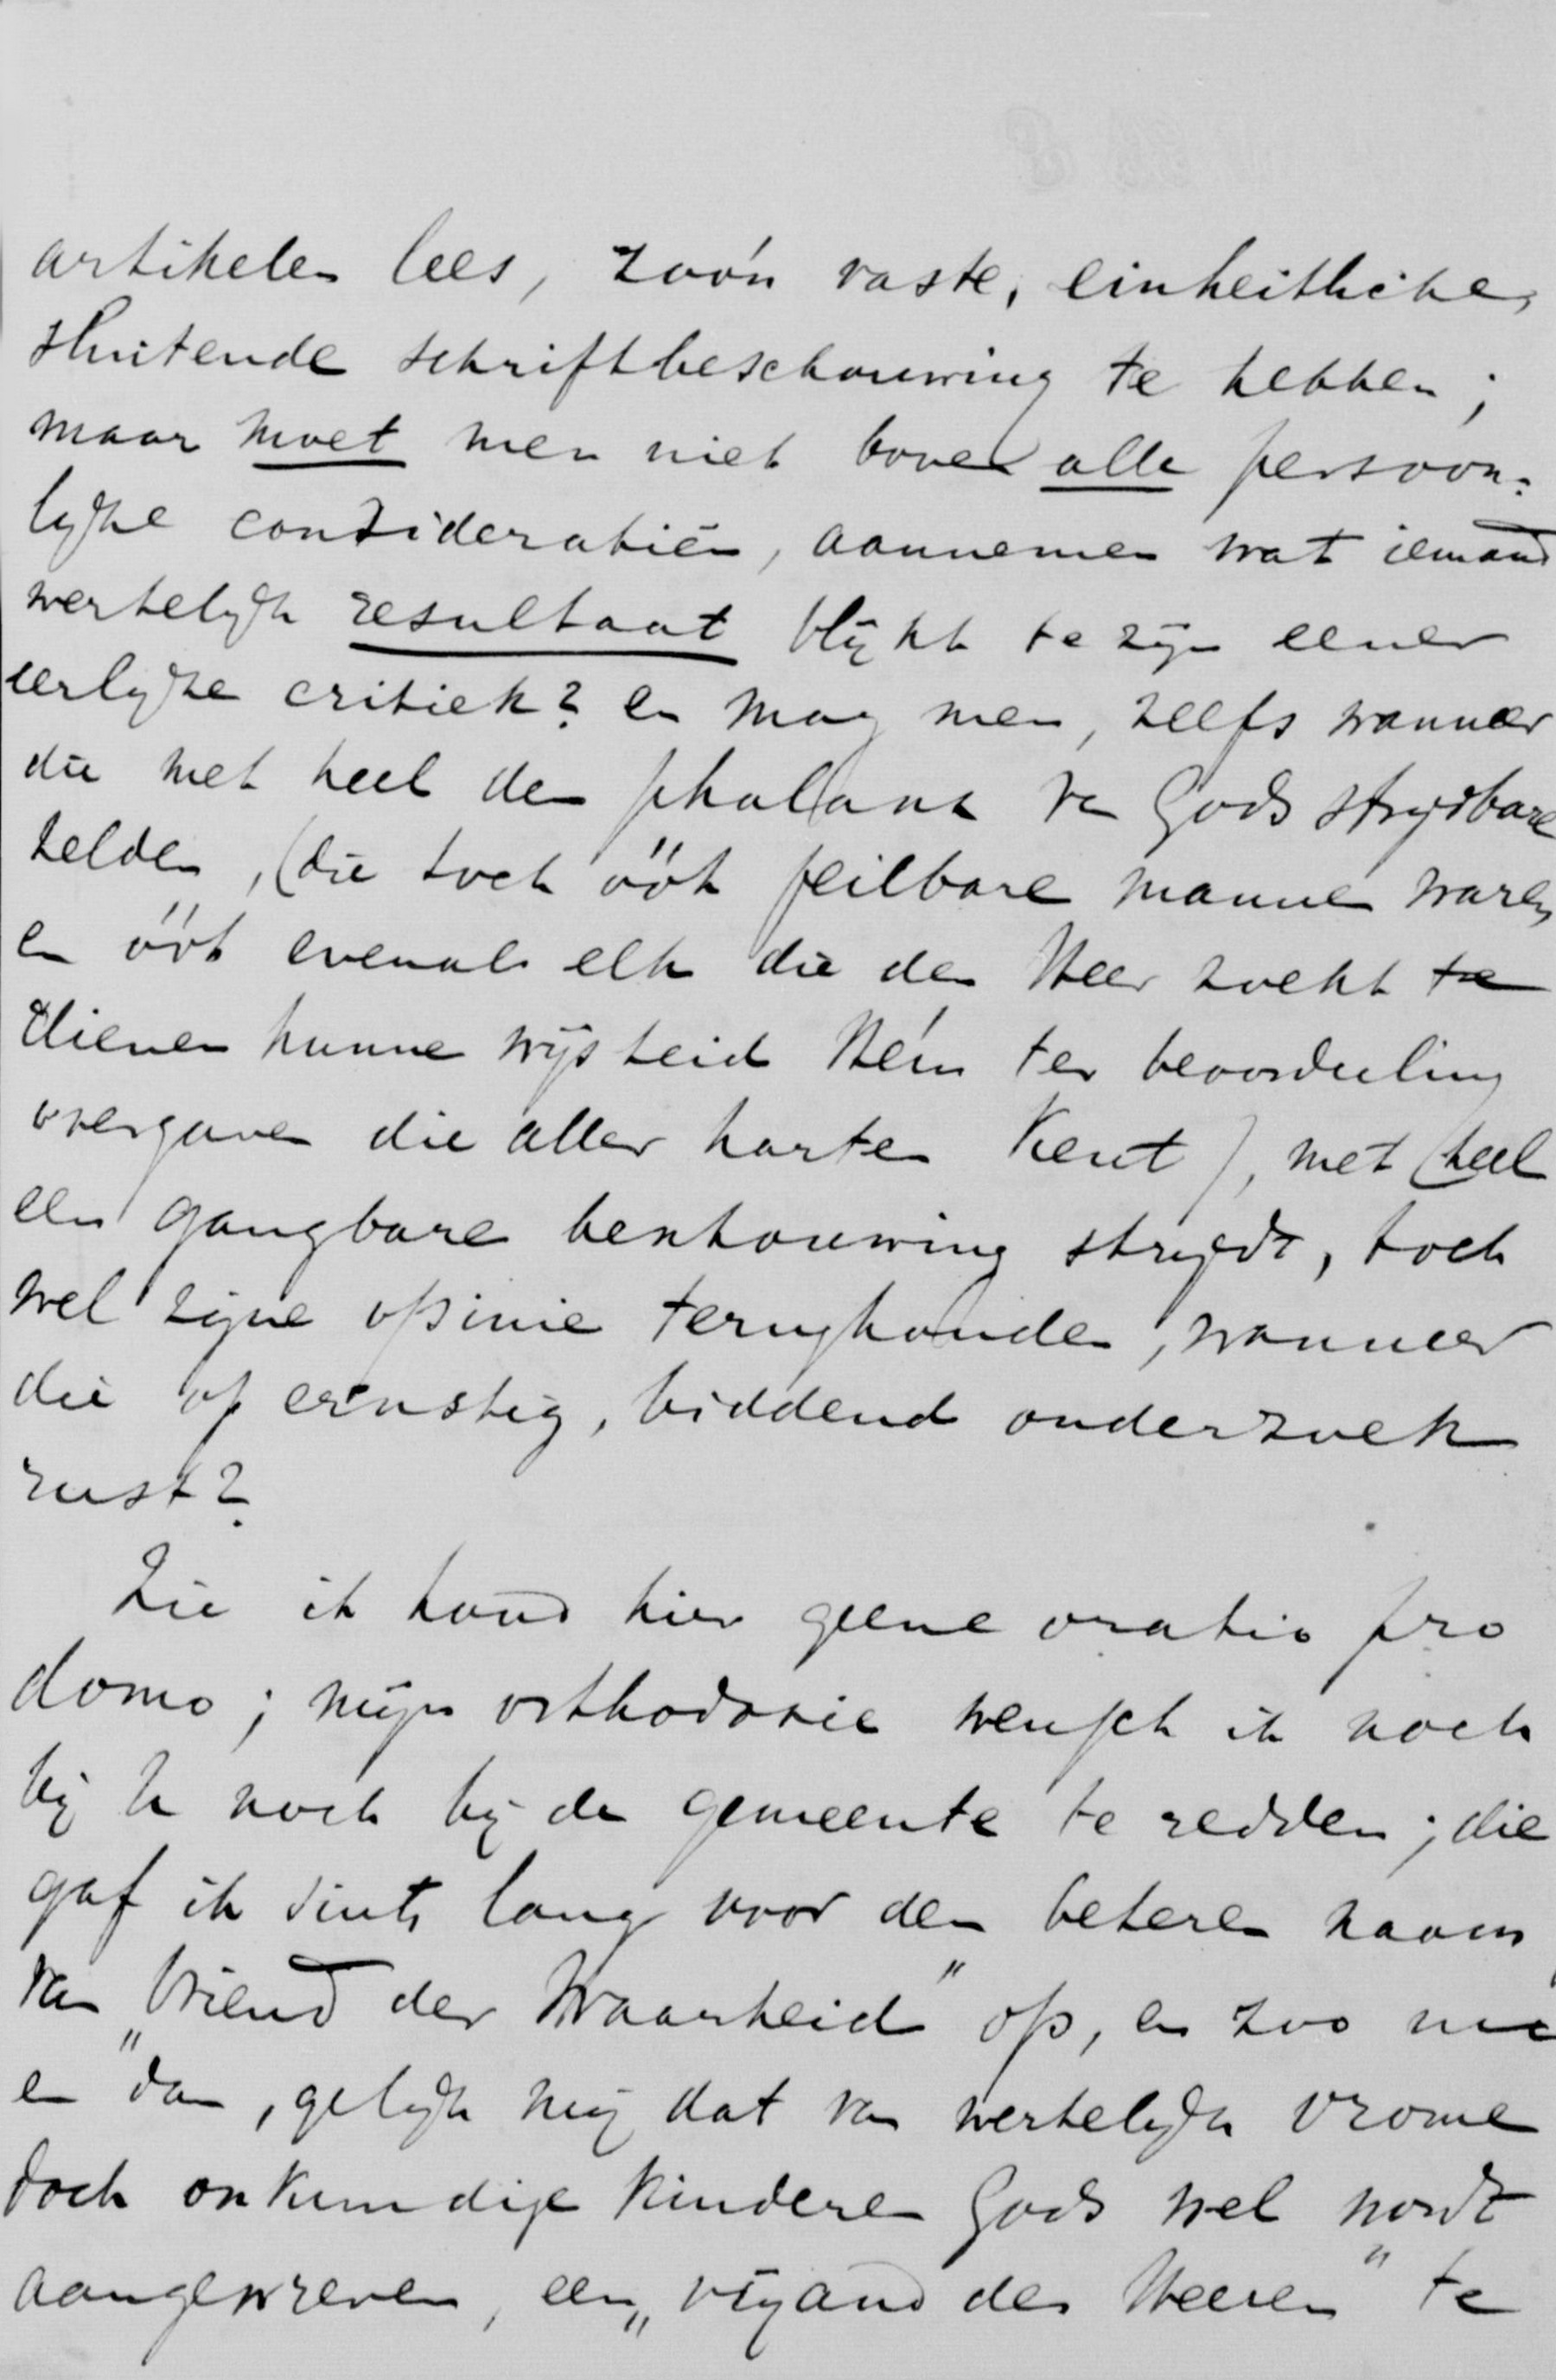 artikelen lees, zoo'n vaste, einheitliche,
sluitende schriftbeschouwing te hebben;
maar moet men niet boven alle persoon-
lijke consideratiën, aannemen wat iemand
werkelijk resultaat blijkt te zijn eener
eerlijke critiek? en mag men, zelfs wanneer
die met heel den phalanx v Gods strijdbare
helden, (die toch óók feilbare mannen waren
en óók evenals elk die den Heer zoekt te
dienen hunne wijsheid Hém ter beoordeeling
overgaven die aller harten kent), met heel
een gangbare beschouwing strijdt, toch
wel zijne opinie terughouden, wanneer
die op ernstig, biddend onderzoek
rust?
Zie ik houd hier geene oratio pro
domo; mijn orthodoxie wensch ik noch
bij U noch bij de gemeente te redden; die
gaf ik sints lang voor den beteren naam
van „Vriend der Waarheid" op, en zoo nu
en dan, gelijk mij dat van werkelijk vrome
doch onkundige kinderen Gods wel wordt
aangewreven, een „vijand des Heeren" te